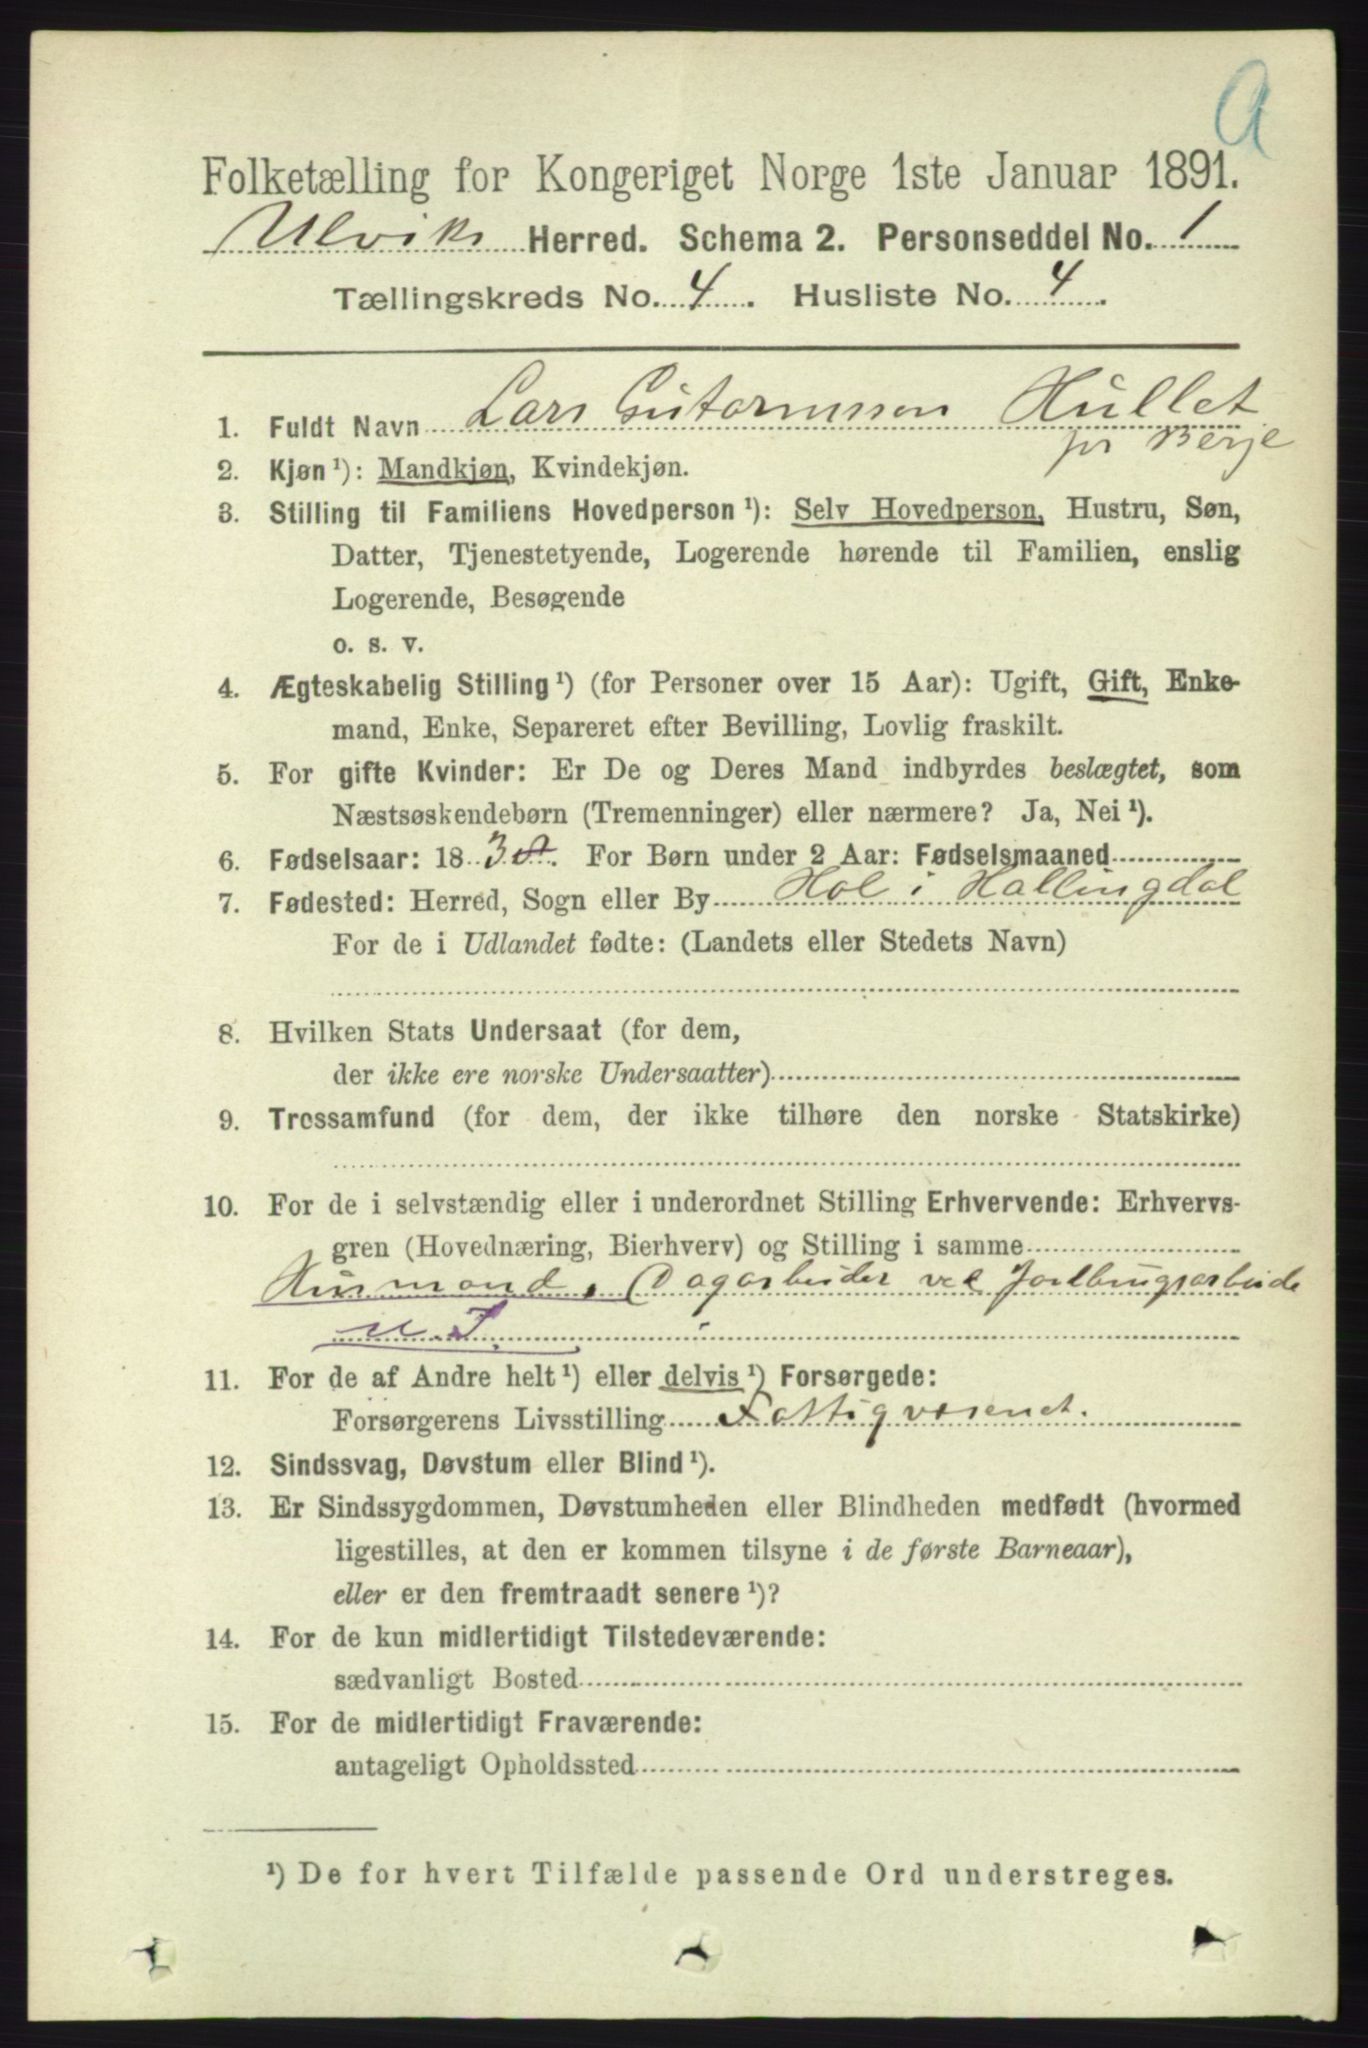 A
Folketælling for Kongeriget Norge 1ste Januar 1891.
Ulvik Herred. Schema 2. Personseddel No. 1
Tællingskreds No. 4. Husliste No. 4.
1. Fuldt Navn Lars Gutormsson Hullet
pr Berje
2. Kjøn ¹): Mandkjøn, Kvindekjøn.
3. Stilling til Familiens Hovedperson ¹): Selv Hovedperson, Hustru, Søn,
Datter, Tjenestetyende, Logerende hørende til Familien, enslig
Logerende, Besøgende
o. s. v.
4. Ægteskabelig Stilling ¹) (for Personer over 15 Aar): Ugift, Gift, Enke-
mand, Enke, Separeret efter Bevilling, Lovlig fraskilt.
5. For gifte Kvinder: Er De og Deres Mand indbyrdes beslægtet, som
Næstsøskendebørn (Tremenninger) eller nærmere? Ja, Nei ¹).
6. Fødselsaar: 18 For Børn under 2 Aar: Fødselsmaaned
7. Fødested: Herred, Sogn eller By Hol i Hallingdal
For de i Udlandet fødte: (Landets eller Stedets Navn)
8. Hvilken Stats Undersaat (for dem,
der ikke ere norske Undersaatter)
9. Trossamfund (for dem, der ikke tilhøre den norske Statskirke)
10. For de i selvstændig eller i underordnet Stilling Erhvervende: Erhvervs-
gren (Hovednæring, Bierhverv) og Stilling i samme
Husmand, Dagarbeider ved Jordbrugsarbeide
M. J.
11. For de af Andre helt ¹) eller delvis ¹) Forsørgede:
Forsørgerens Livsstilling Fattigvæsenet.
12. Sindssvag, Døvstum eller Blind ¹).
13. Er Sindssygdommen, Døvstumheden eller Blindheden medfødt (hvormed
ligestilles, at den er kommen tilsyne i de første Barneaar),
eller er den fremtraadt senere ¹)?
14. For de kun midlertidigt Tilstedeværende:
sædvanligt Bosted
15. For de midlertidigt Fraværende:
antageligt Opholdssted
¹) De for hvert Tilfælde passende Ord understreges.